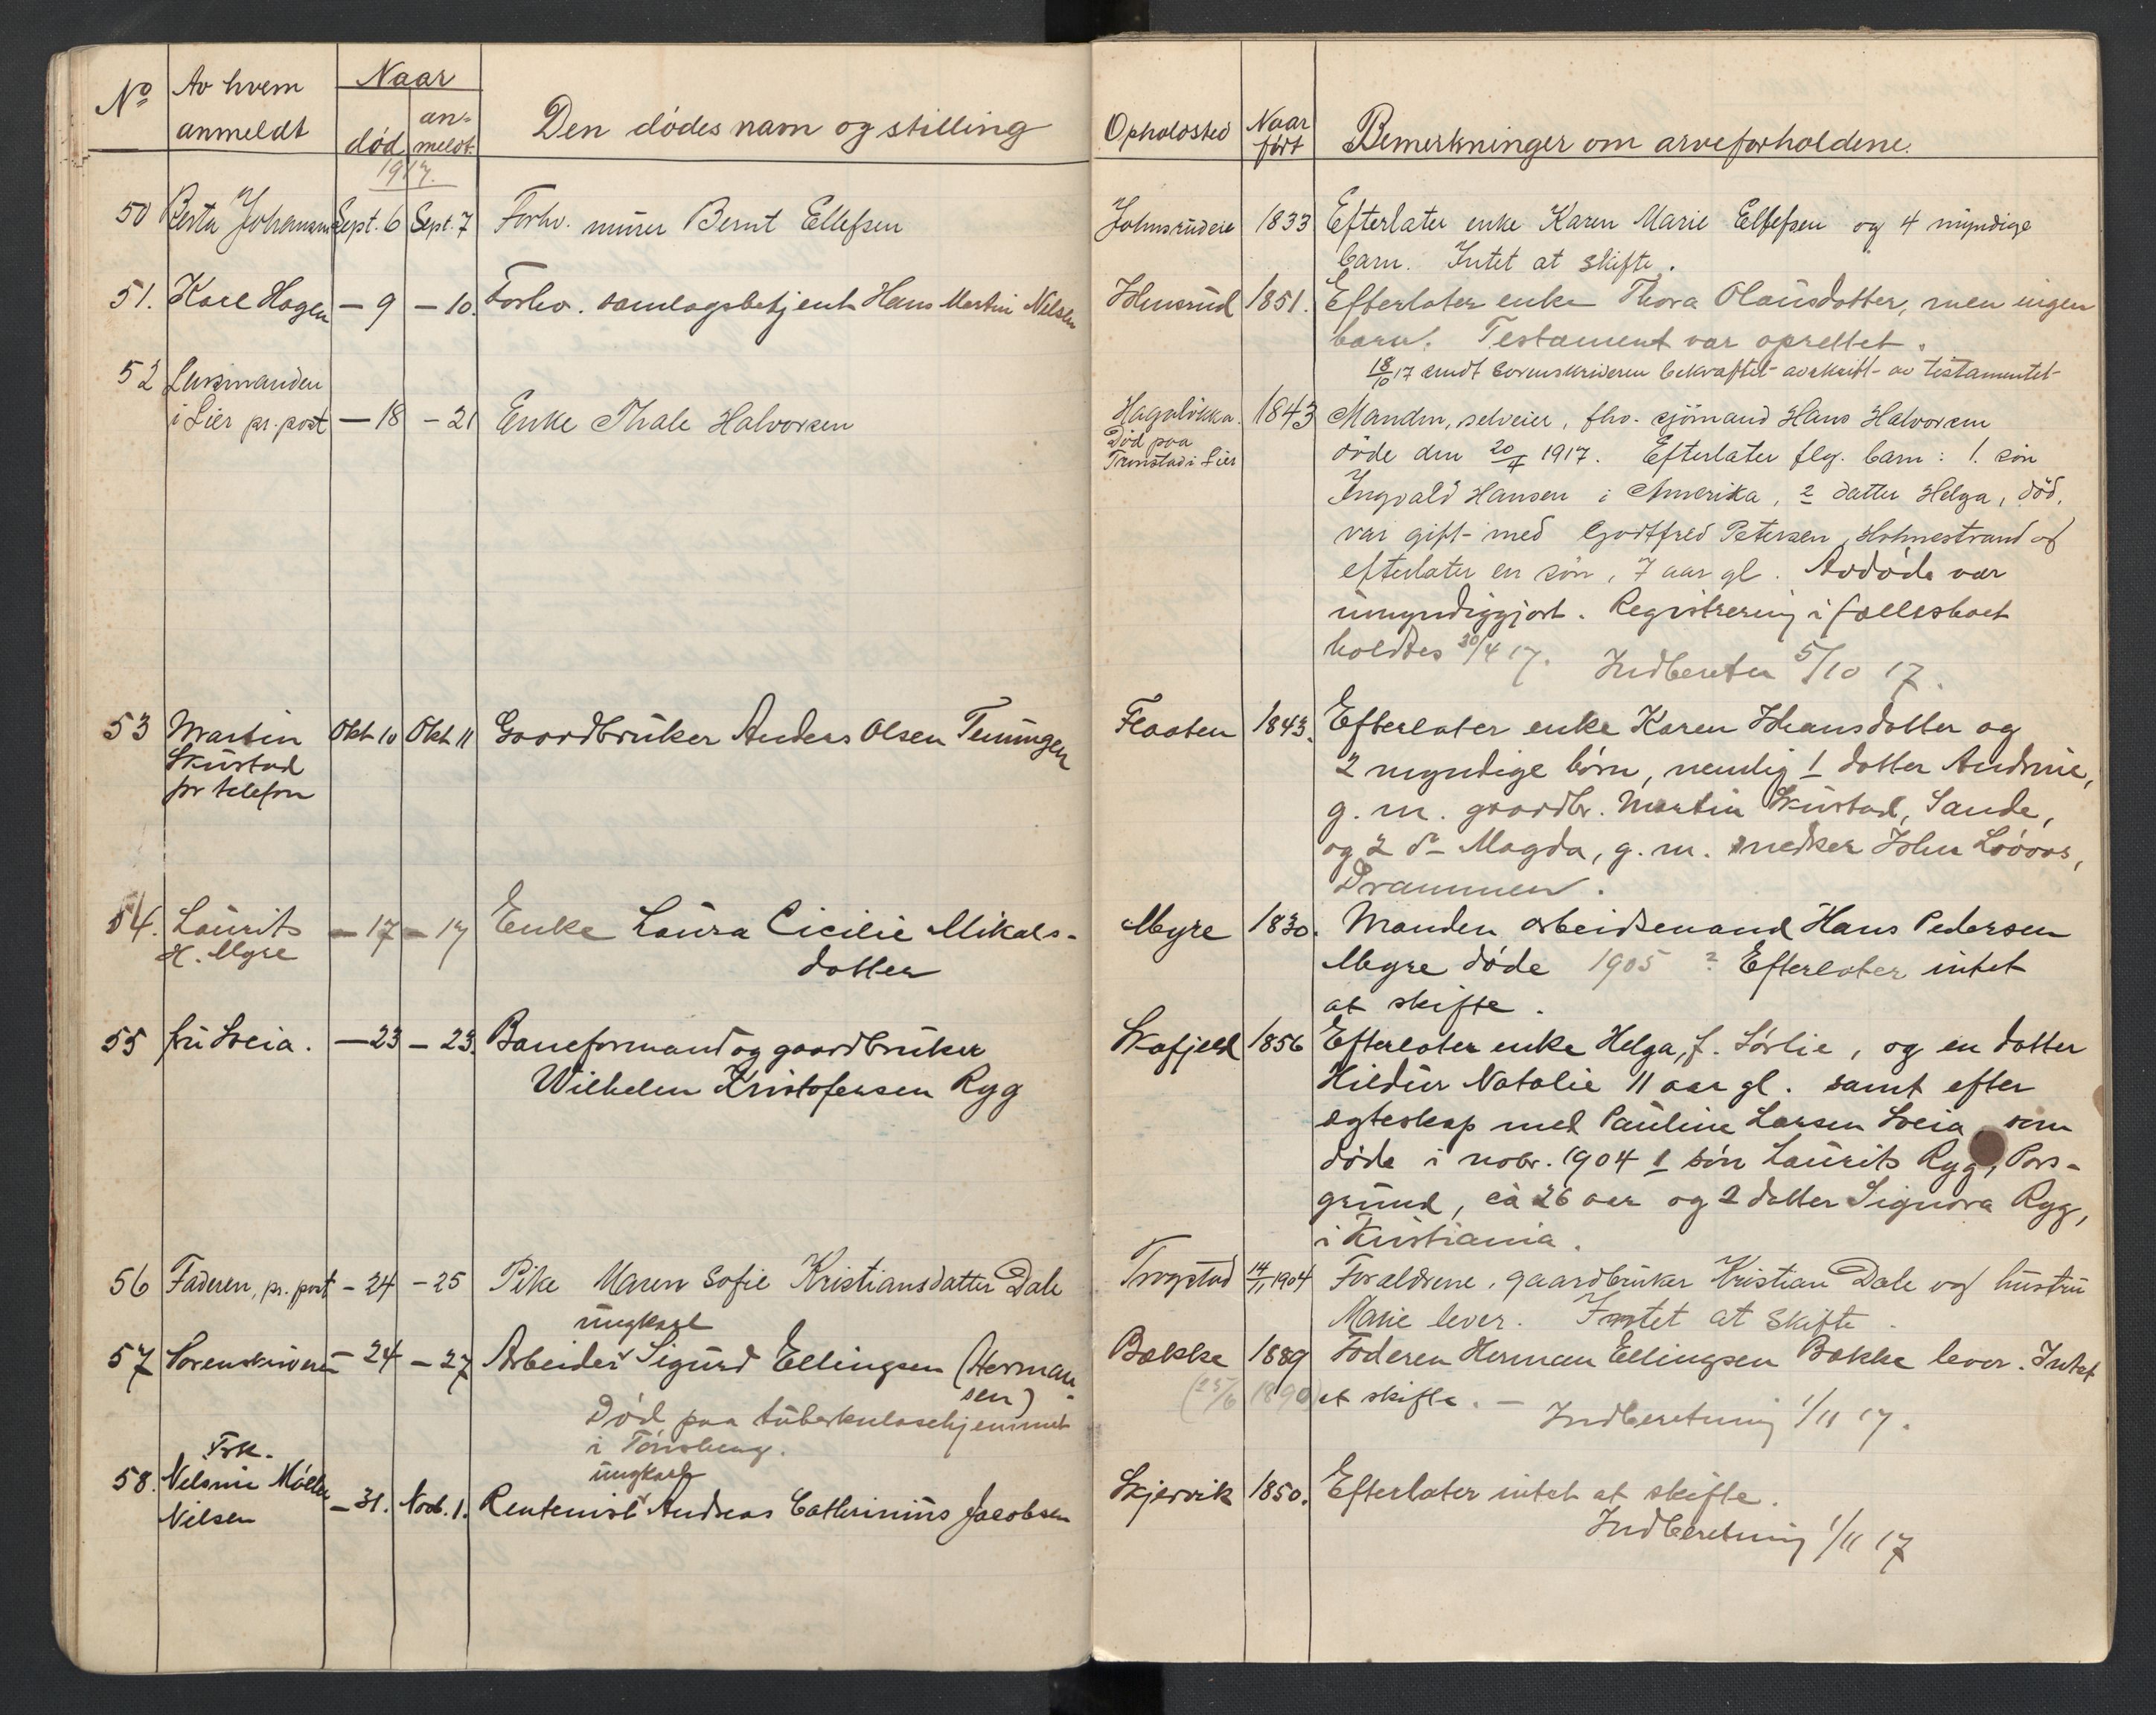 No
Av hvem
anmeldt
Naar
død
an-
meldt.
Den dødes navn og stilling
1917.
50 Berta Johansen Sept. 6 Sept. 7 Forhv. murer Bernt Ellefsen
51. Karl Hagen — 9 — 10. Forhv. samlagsbetjent Hans Martin Nilsen
52 Lensmanden
i Lier pr. post — 18 — 21 Enke Thale Halvorsen
53 Martin Okt 10 Okt 11 Gaardbruker Anders Olsen Teningen
Skustad
pr telefon
54. Laurits — 17 — 17 Enke Laura Cicilie Mikals-
H. Myre datter
55 fru Sveia. — 23 — 23. Baneformand og gaardbruker
Wilhelm Kristofersen Ryg
56 Faderen, pr. post — 24 — 25 Pike Maren Sofie Kristiansdatter Dale
ungkarl
57 Sorenskriveren — 24 — 27 Arbeider Sigurd Ellingsen (Herman-
sen)
Død paa tuberkulosehjemmet
i Tönsberg.
Frk. ungkarl
58. Nelsine Möller
Nilsen — 31. Nob. 1. Rentenist Andreas Cathrinius Jacobsen
Opholdsted
Naar
født
Bemerkninger om arveforholdene.
Johnsrudeie 1833 Efterlater enke Karen Marie Ellefsen og 4 myndige
barn. Intet at skifte.
Johnsrud 1851. Efterlater enke Thora Olausdatter, men ingen
barn. Testament var oprettet.
18/10 17 sendt sorenskriveren bekræftet avskrift av testamentet
Hagaløkka. 1843 Manden, selveier, fhv. sjömand Hans Halvorsen
Död paa
Transtad i Lier
döde den 20/4 1917. Efterlater flg. barn: 1. sön
Ingvald Hansen i Amerika, 2 datter Helga, död,
var gift med Godtfred Petersen, Holmestrand og
efterlater en sön, 7 aar gl. Avdøde var
umyndiggjort. Registrering i fællesboet
holdtes 30/4 17. Indberetn 5/10 17.
Flaaten 1843. Efterlater enke Karen Johansdatter og
2 myndige børn, nemlig 1 datter Andrine,
g. m. gaardbr. Martin Skustad, Sande,
og 2 do Magda, g. m. snedker John Løvaas,
Drammen.
Myre 1830. Manden arbeidsmand Hans Pedersen
Myre døde 1905 ? Efterlater intet
at skifte.
Skafjeld 1856 Efterlater enke Helga, f. Sørlie, og en datter
Hildur Natalie 11 aar gl. samt efter
egteskap med Pauline Larsen Sveia, som
døde i nobr. 1904 1 søn Laurits Ryg, Pors-
grund, ca 26 aar og 2 datter Signora Ryg,
i Kristiania.
Trogstad 14/11 1904 Forældrene, gaardbruker Kristian Dale og hustru
Marie lever. Intet at skifte.
Bække 1889 Faderen Herman Ellingsen Bække lever. Intet
(25/6 1890) at skifte. — Indberetning 1/11 17.
Skjervik 1850. Efterlater intet at skifte.
Indberetning 1/11 17